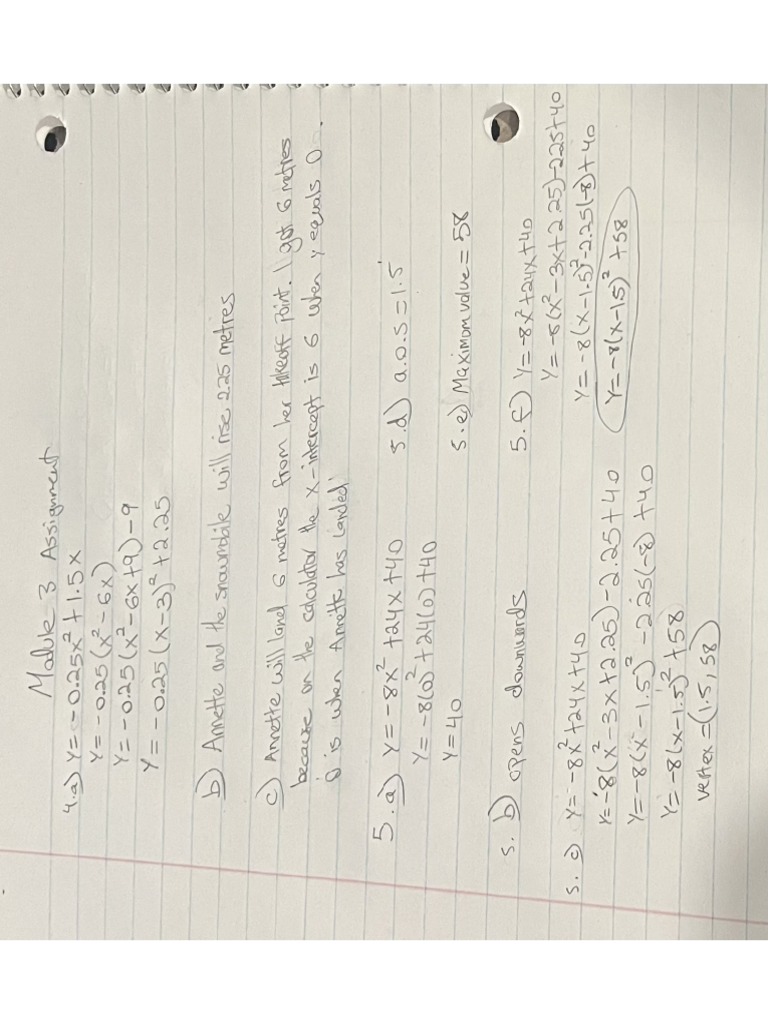 Module 3 Assignment
4.a) y = -0.25x² + 1.5x
y = -0.25(x² - 6x)
y = -0.25(x² - 6x + 9) - 9
y = -0.25(x - 3)² + 2.25
b) Annette and the snowmobile will rise 2.25 metres
c) Annette will land 6 metres from her takeoff point. I got 6 metres
because on the calculator the x-intercept is 6 when y equals 0.
0 is when Annette has landed.
5.a) y = -8x² + 24x + 40
y = -8(0)² + 24(0) + 40
y = 40
5.b) opens downwards
5.c) y = -8x² + 24x + 40
y = -8(x² - 3x + 2.25) - 2.25 + 40
y = -8(x - 1.5)² - 2.25(-8) + 40
y = -8(x - 1.5)² + 58
vertex = (1.5, 58)
5.d) a.o.s = 1.5
5.e) Maximum value = 58
5.f) y = -8x² + 24x + 40
y = -8(x² - 3x + 2.25) - 2.25 + 40
y = -8(x - 1.5)² - 2.25(-8) + 40
y = -8(x - 1.5)² + 58